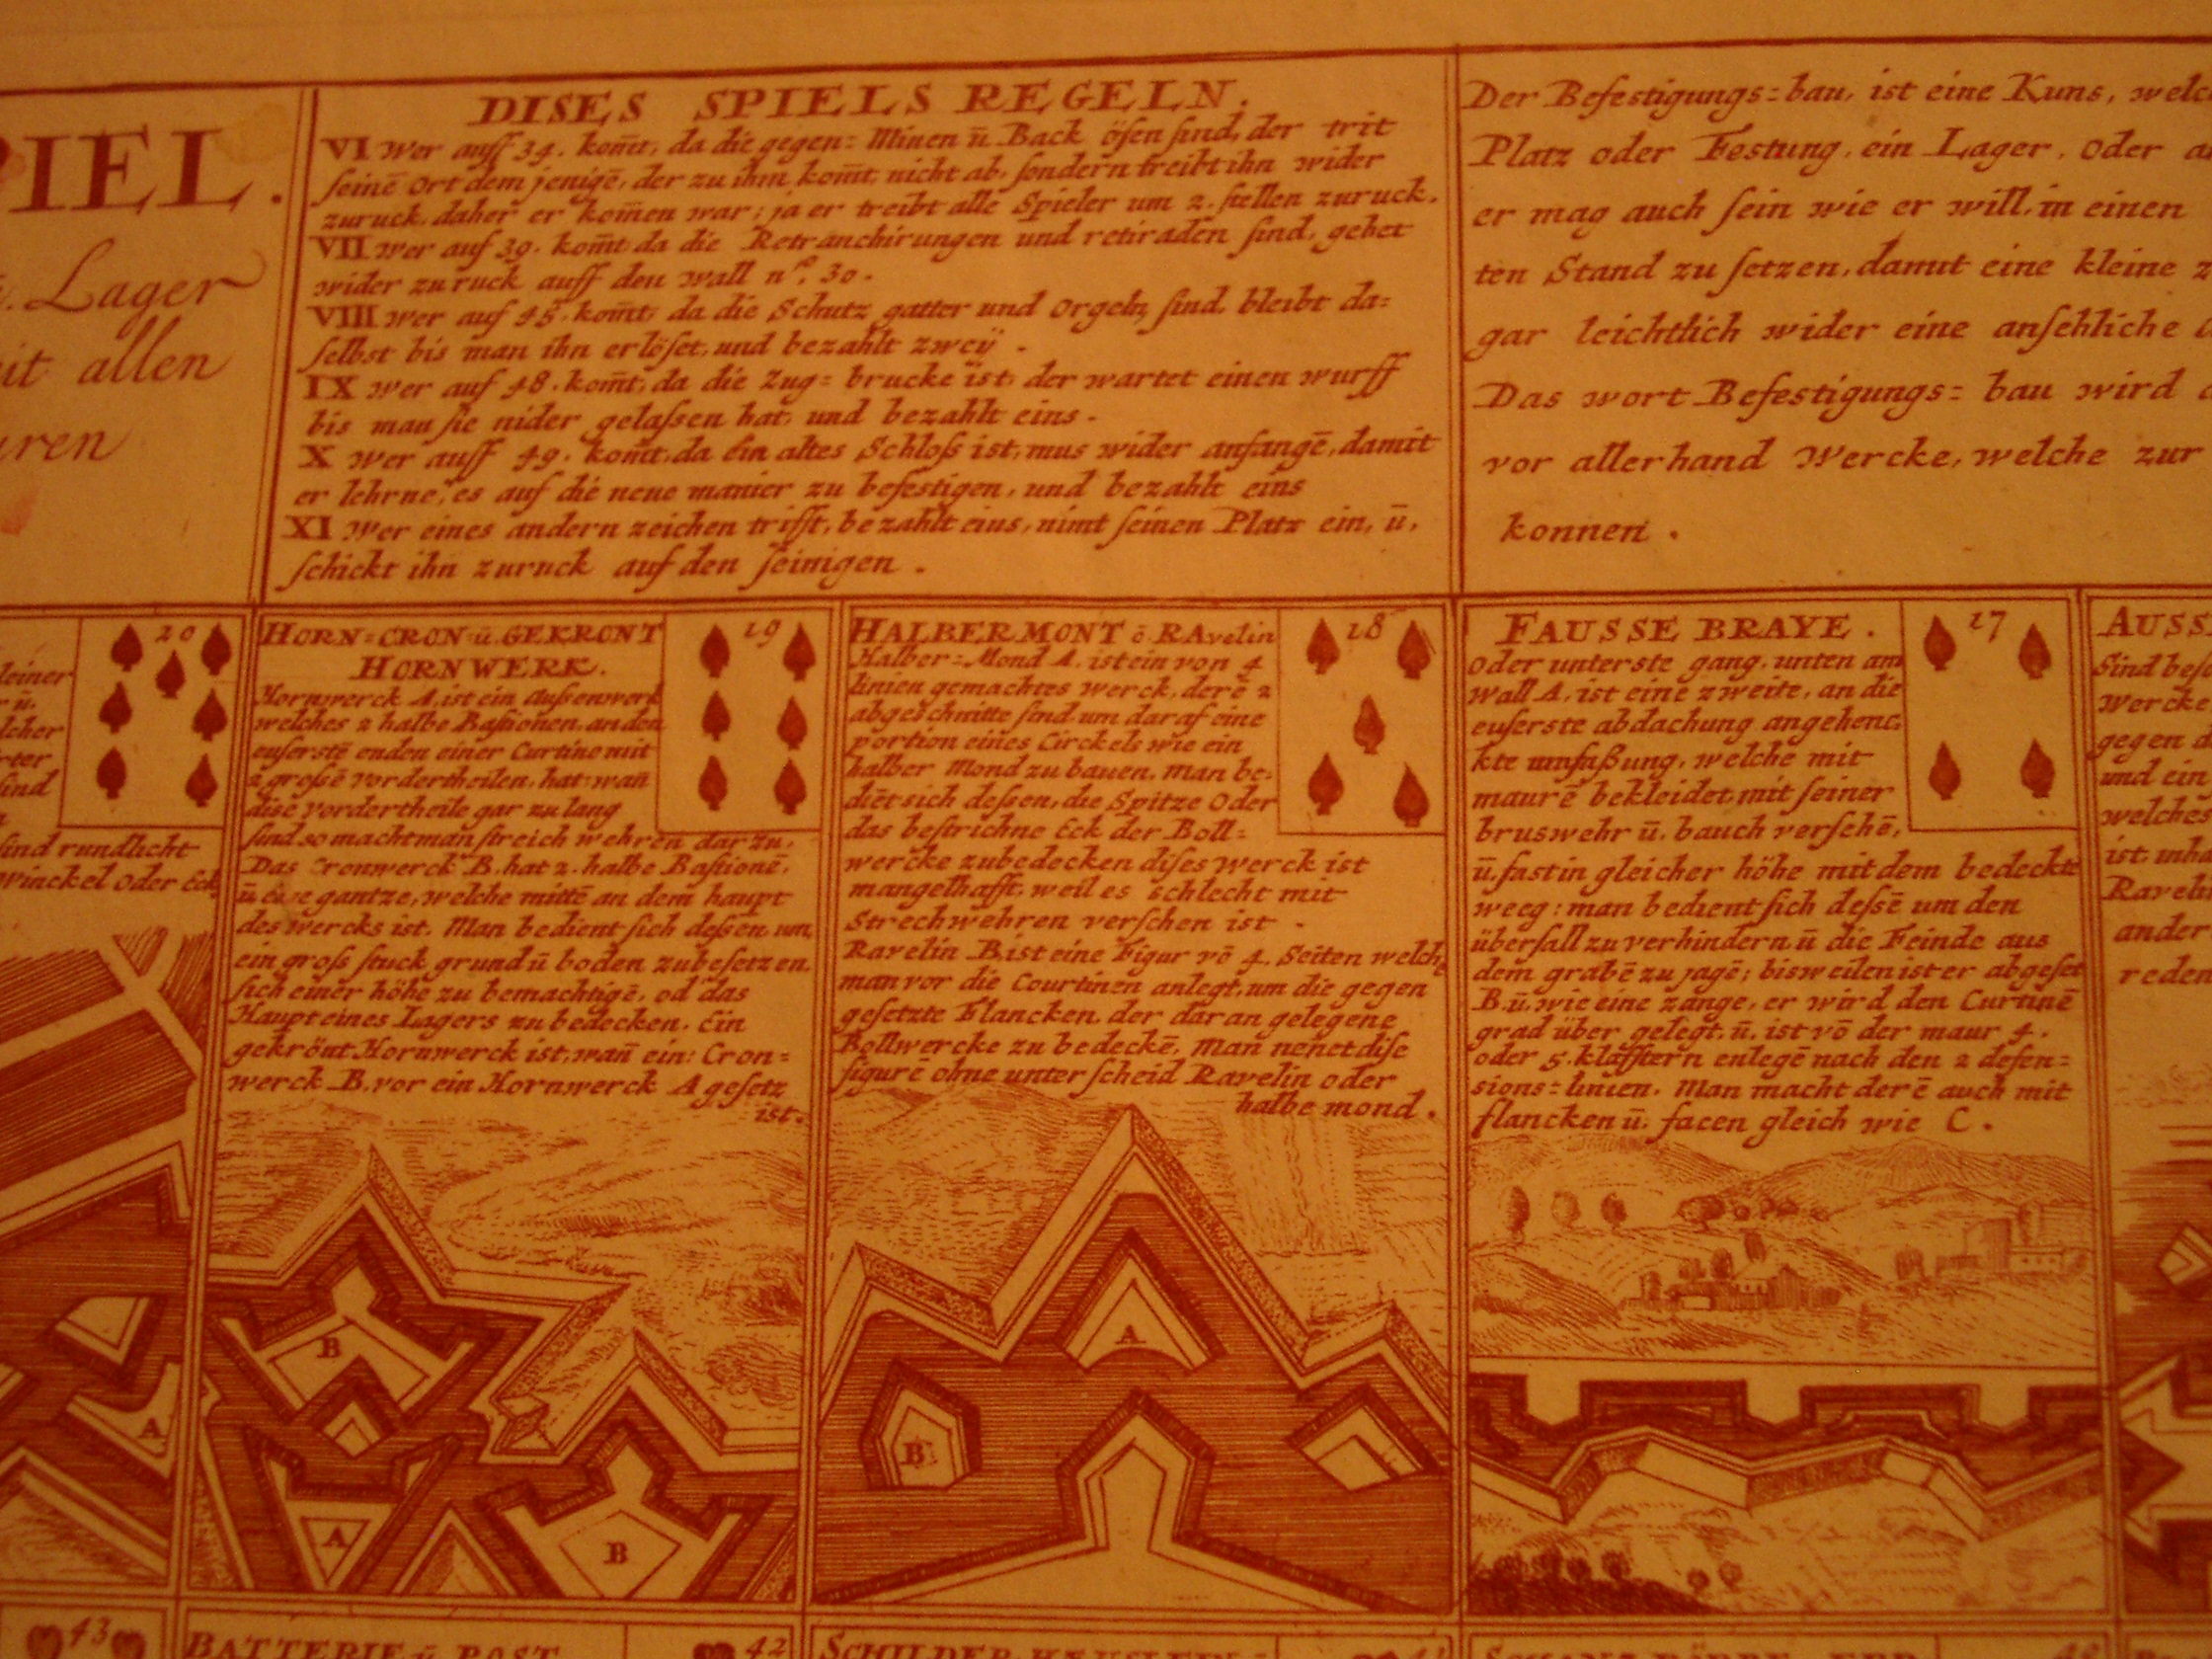 PIEL.
Lager
it allen
uren
DISES SPIELS REGELN.
VI Wer auff 34. kom̄t, da die gegen= Minen ū Back öfen sind, der trit
seinē Ort dem jenigē, der zu ihm kom̄t, nicht ab, sondern treibt ihn wider
zuruck, daher er kom̄en war; ja er treibt alle Spieler um 2. stellen zuruck.
VII Wer auf 39. kom̄t da die Retranchirungen und retiraden sind, gehet
wider zuruck auff den Wall nº. 30.
VIII Wer auf 45. kom̄t, da die Schutz gatter und Orgeln sind, bleibt da=
selbst bis man ihn erlöset, und bezahlt zweÿ.
IX Wer auf 48. kom̄t, da die Zug= brucke ist, der wartet einen wurff
bis man sie nider gelassen hat, und bezahlt eins.
X Wer auff 49. kom̄t, da ein altes Schloss ist, mus wider anfangē, damit
er lehrne, es auf die neue manier zu befestigen, und bezahlt eins
XI Wer eines andern zeichen trifft, bezahlt eins, nimt seinen Platz ein, ū,
schickt ihn zuruck auf den seinigen.
Der Befestigungs=bau, ist eine Kuns, welc
Platz oder Festung, ein Lager, oder
er mag auch sein wie er will, in einen
ten Stand zu setzen, damit eine kleine
gar leichtlich wider eine ansehliche
Das wort Befestigungs= bau wird
vor allerhand Wercke, welche zur
konnen.
20
leiner
ū.
lcher
rter
sind
sind rundlicht
winckel oder Eck
A
HORN=CRON=ū. GEKRONT
HORNWERK.
19
Hornwerck A, ist ein Aussenwerk
welches 2 halbe Bastionen, an den
eusserstē enden einer Curtine mit
2 grossē vordertheilen, hat; wan̄
dise vordertheile gar zu lang
sind so macht man streich wehren darzu.
Das Cronwerck B. hat 2. halbe Bastionē,
ū eine gantze, welche mittē an dem haupt
des wercks ist. Man bedient sich dessen um,
ein gross stuck grund ū boden zubesetzen,
sich einer höhe zu bemachtigē, od das
Haupt eines Lagers zu bedecken. Ein
gekrönt Hornwerck ist, wan̄ ein: Cron=
werck B. vor ein Hornwerck A gesetz
ist.
B
A
B
HALBER MONT ō. RAvelin
18
Halber=Mond A, ist ein von 4
linien gemachtes werck, derē 2
abgeschnitte sind, um daraf eine
portion eines Circkels wie ein
halber Mond zu bauen. Man be=
diēt sich dessen, die Spitze Oder
das bestrichne Eck der Boll=
wercke zubedecken dises werck ist
mangelhafft, weil es schlecht mit
Strechwehren versehen ist.
Ravelin B. ist eine Figur vō 4. Seiten welche
man vor die Courtinen anlegt, um die gegen
gesetzte Flancken, der daran gelegene
Bollwercke zu bedeckē. Man nēnet dise
figurē ohne unterscheid Ravelin oder
halbe mond.
A
B
FAUSSE BRAYE.
17
Oder unterste gang, unten am
Wall A, ist eine zweite, an die
euserste abdachung angehenc,
kte umfaßung, welche mit
maurē bekleidet, mit seiner
bruswehr ū, bauch versehē,
ū, fast in gleicher höhe mit dem bedeckte
weeg: man bedient sich dessē um den
überfall zu verhindern ū die Feinde aus
dem grabē zu jagē; bisweilen ist er abgeset
B. ū, wie eine zange, er wird den Curtinē
grad über gelegt, ū, ist vō der maur 4.
oder 5. klafftern enlegē nach den 2 defen=
sions=linien. Man macht derē auch mit
flancken ū. facen gleich wie C.
AUSS
Sind
Wercke
gegen
und ein
welches
ist
Ravelin
ander
reden
43
BATTERIE ū POST
42
SCHILDER HEUSLEIN
41